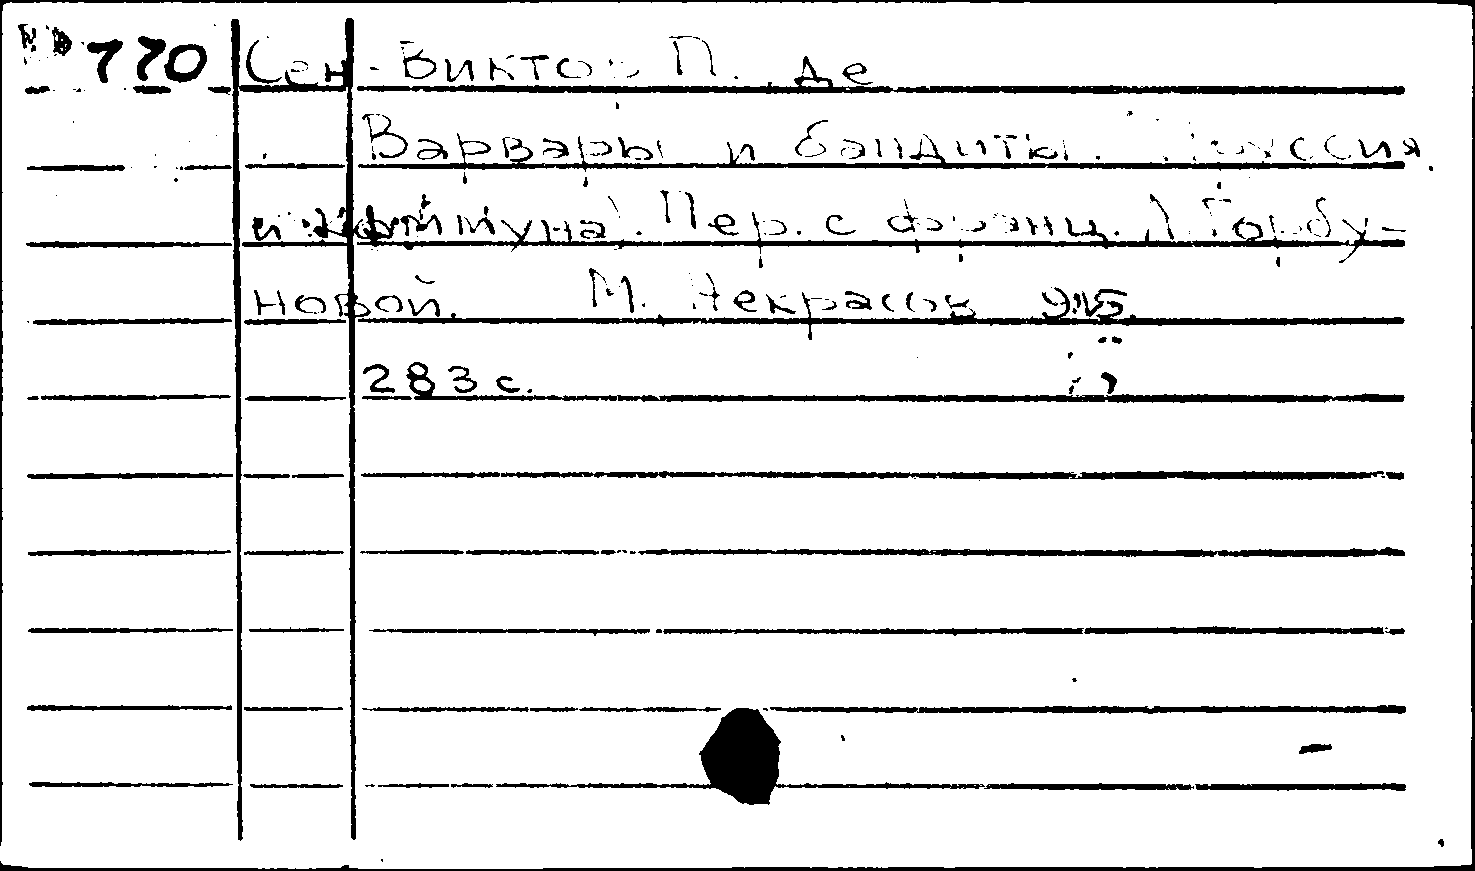 170 Сен-Виктор П. де
Варвары и бандиты. Пруссия
и Коммуна. Пер. с франц. Л. Горбу-
новой. М. Некрасов
283 с.